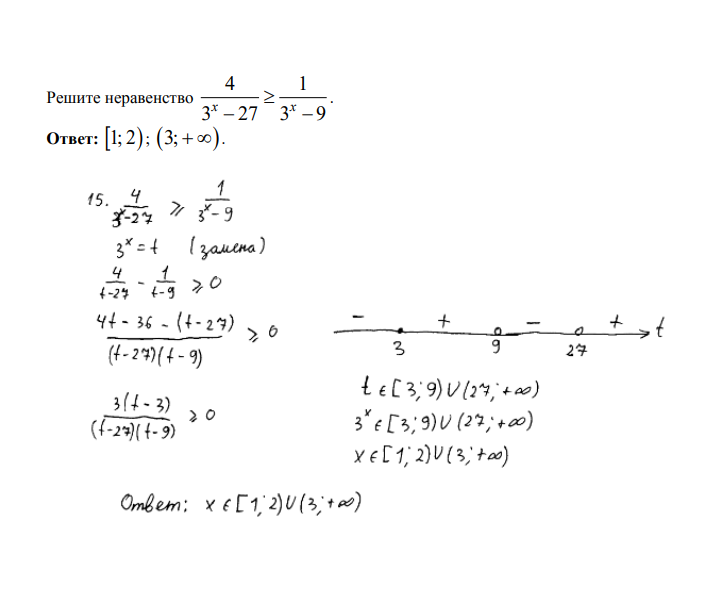 Решите неравенство 4/(3^x − 27) ≥ 1/(3^x − 9).
Ответ: [1; 2); (3; +∞).
15. 4/(3^x-27) ≥ 1/(3^x-9)
3^x = t (замена)
4/(t-27) - 1/(t-9) ≥ 0
(4t - 36 - (t-27))/((t-27)(t-9)) ≥ 0
3(t-3)/((t-27)(t-9)) ≥ 0
− + − + t
3 9 27
t ∈ [3; 9) ∪ (27; +∞)
3^x ∈ [3; 9) ∪ (27; +∞)
x ∈ [1; 2) ∪ (3; +∞)
Ответ: x ∈ [1; 2) ∪ (3; +∞)